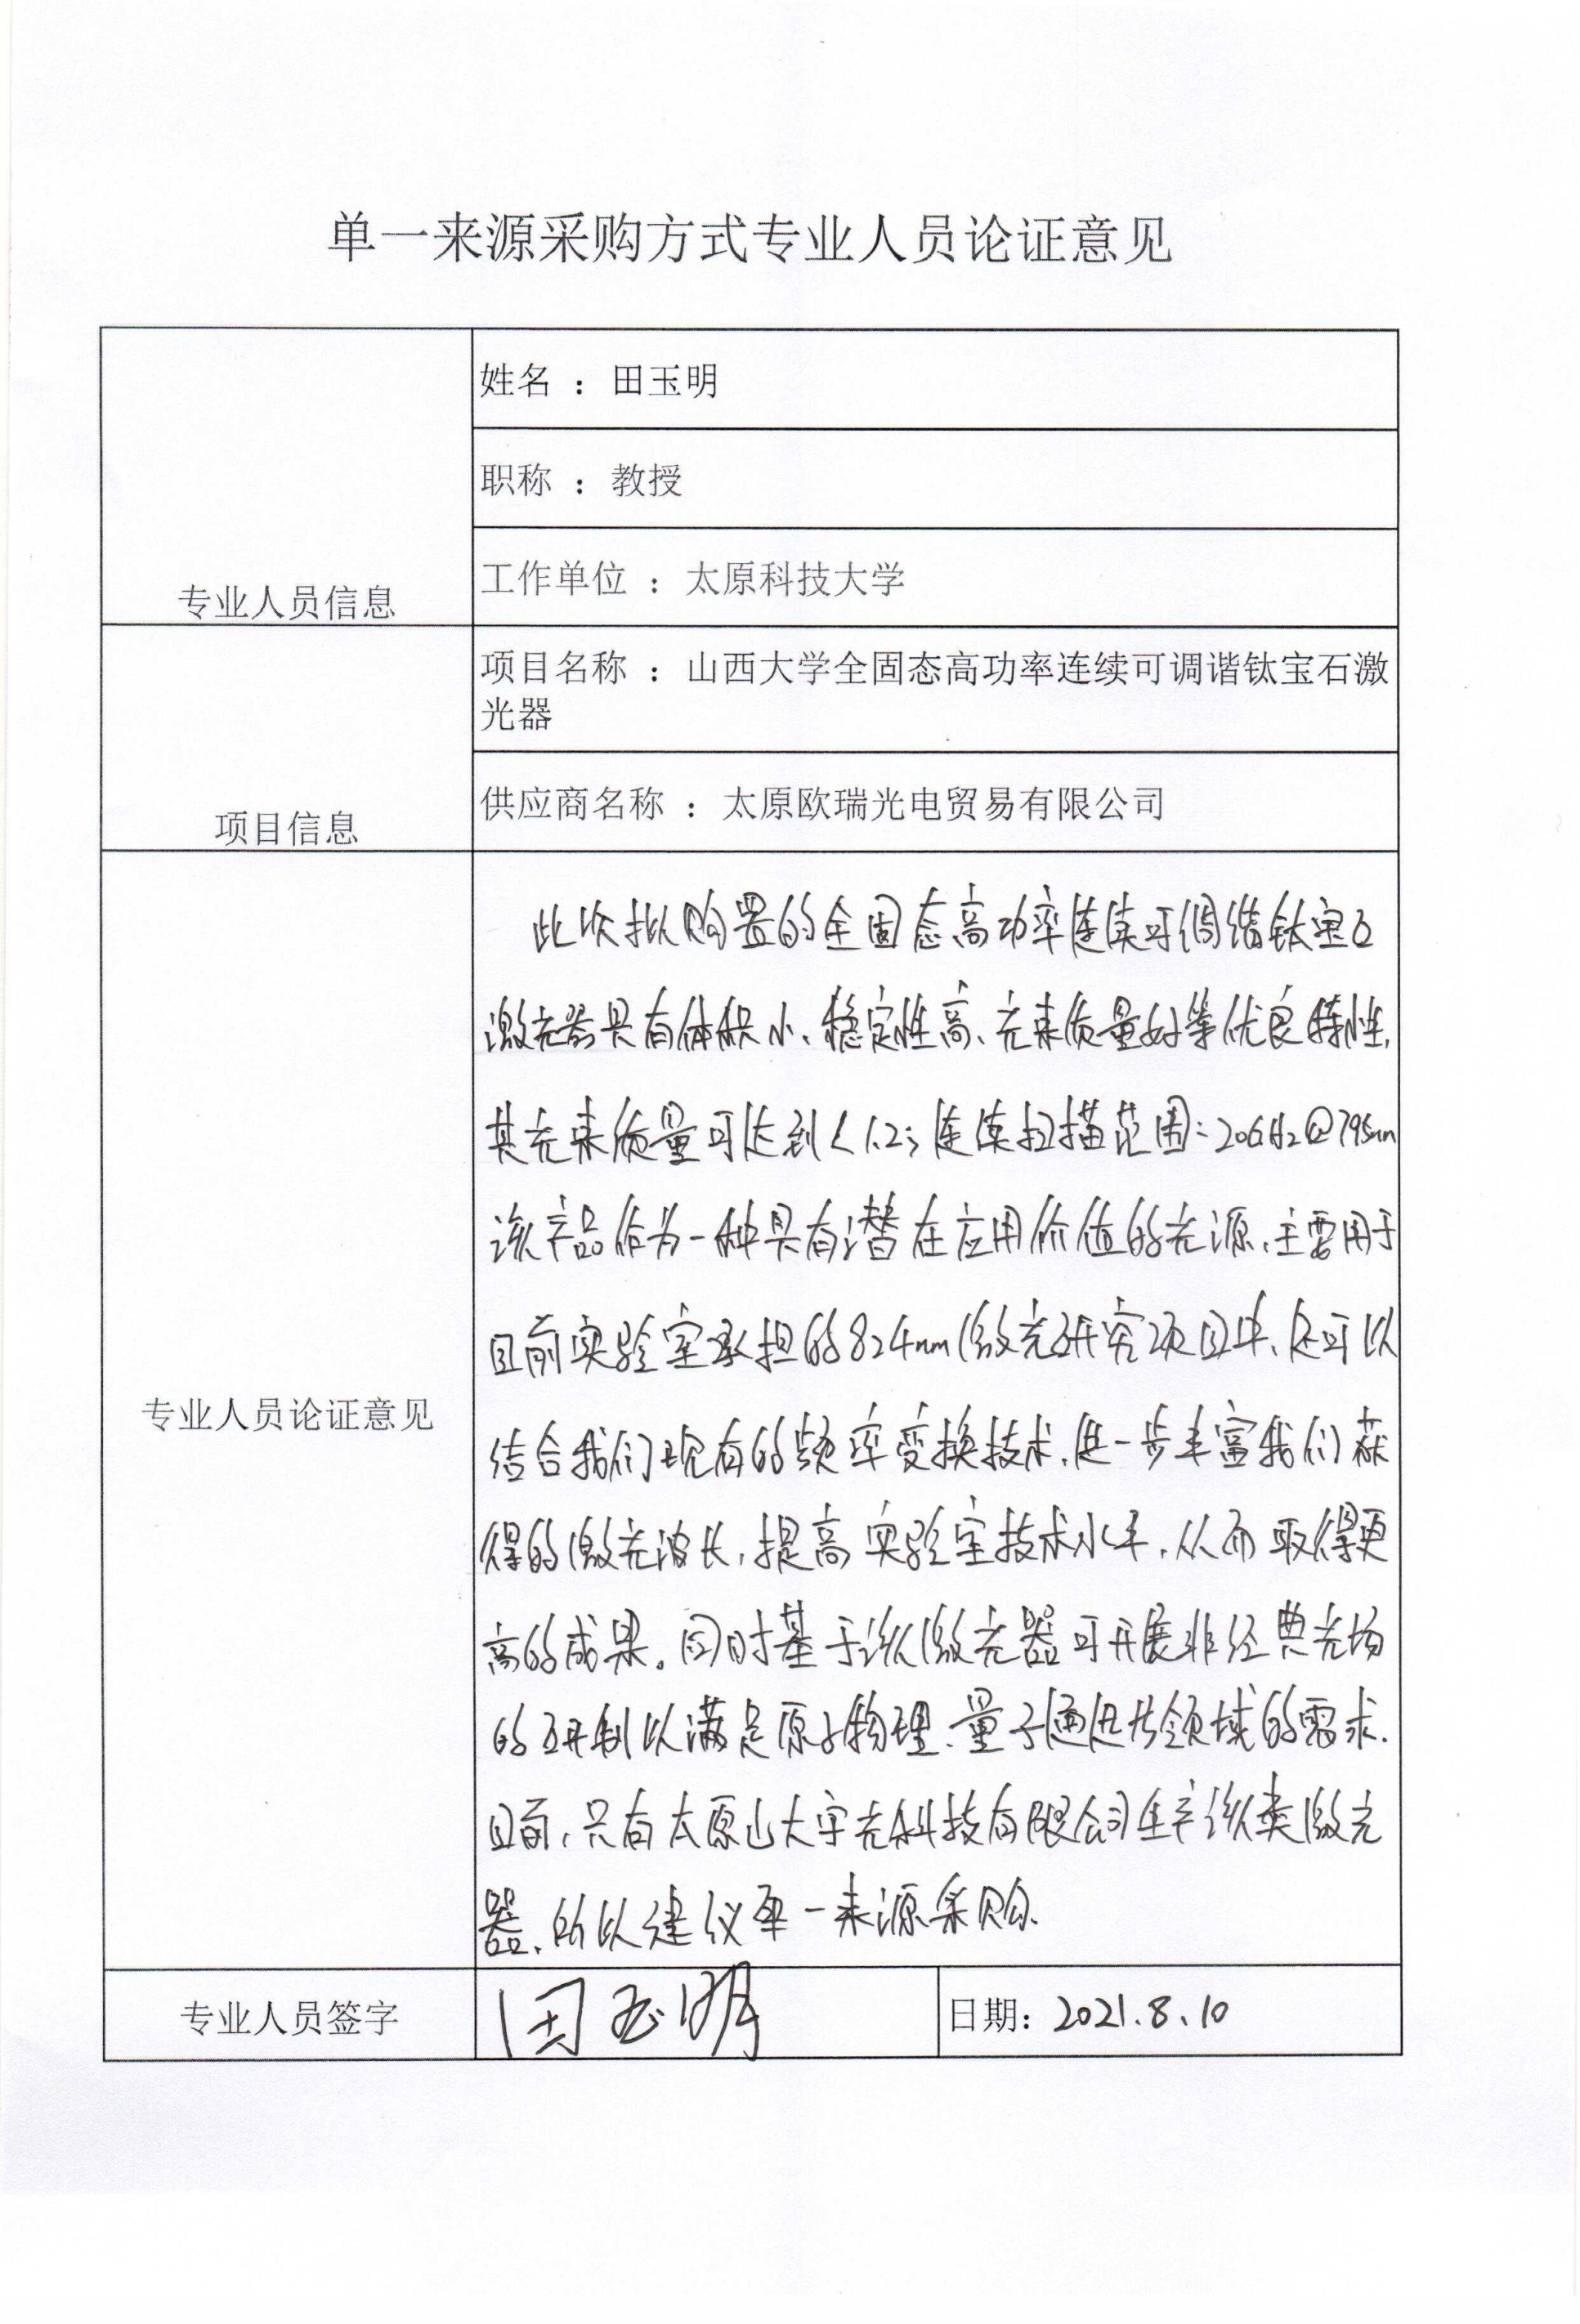 单一来源采购方式专业人员论证意见
专业人员信息
姓名 : 田玉明
职称 : 教授
工作单位 : 太原科技大学
项目信息
项目名称 : 山西大学全固态高功率连续可调谐钛宝石激
光器
供应商名称 : 太原欧瑞光电贸易有限公司
专业人员论证意见
此次拟购置的全固态高功率连续可调谐钛宝石
激光器具有体积小、稳定性高、光束质量好等优良特性,
其光束质量可达到<1.2; 连续扫描范围:20GHz@795nm
该产品作为一种具有潜在应用价值的光源,主要用于
目前实验室承担的824nm激光研究项目中,还可以
结合我们现有的频率变换技术,进一步丰富我们获
得的激光波长,提高实验室技术水平,从而取得更
高的成果。同时基于该激光器可开展非经典光场
的研制以满足原子物理、量子通迅等领域的需求.
目前,只有太原山大宇光科技有限公司生产该类激光
器,所以建议单一来源采购.
专业人员签字
田玉明
日期: 2021.8.10